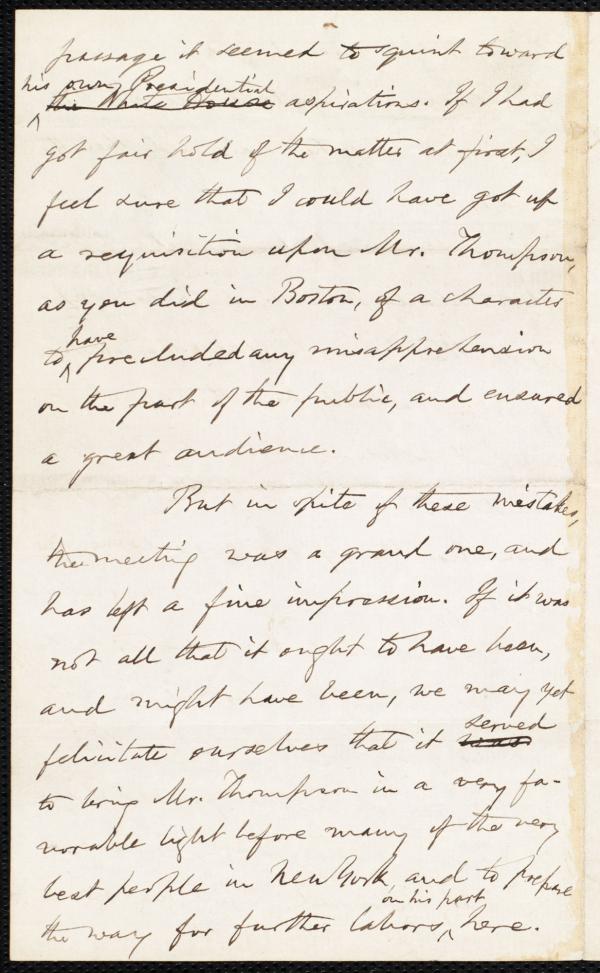 passage it seemed to squint toward
his own Presidential
the White House aspirations. If I had
got fair hold of the matter at first, I
feel sure that I could have got up
a requisition upon Mr. Thompson,
as you did in Boston, of a character
have
to precluded any misapprehension
on the part of the public, and ensured
a great audience.
But in spite of these mistakes,
the meeting was a grand one, and
has left a fine impression. If it was
not all that it ought to have been,
and might have been, we may yet
served
felicitate ourselves that it was
to bring Mr. Thompson in a very fa-
vorable light before many of the very
best people in New York, and to prepare
on his part
the way for further labors here.